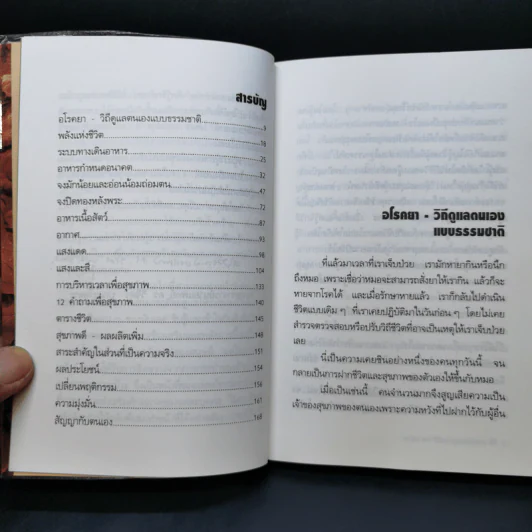 สารบัญ
อโรคยา - วิถีดูแลตนเองแบบธรรมชาติ 5
พลังแห่งชีวิต 16
ระบบทางเดินอาหาร 25
อาหารกำหนดอนาคต 32
จงมักน้อยและอ่อนน้อมถ่อมตน 47
จงปิดทองหลังพระ 72
อาหารเนื้อสัตว์ 87
อากาศ 93
แสงแดด 98
แสงและสี 104
การบริหารเวลาเพื่อสุขภาพ 135
12 คำถามเพื่อสุขภาพ 140
ตารางชีวิต 145
สุขภาพดี - ผลผลิตเพิ่ม 148
สาระสำคัญในส่วนที่เป็นความจริง 151
ผลประโยชน์ 154
เปลี่ยนพฤติกรรม 156
ความมุ่งมั่น 161
สัญญากับตนเอง 168
อโรคยา - วิถีดูแลตนเอง
แบบธรรมชาติ
ที่แล้วมาเวลาที่เราเจ็บป่วย เรามักหายากินหรือนึก
ถึงหมอ เพราะเชื่อว่าหมอจะสามารถสั่งยาให้เรากิน แล้วก็จะ
หายจากโรคได้ และเมื่อรักษาหายแล้ว เราก็กลับไปดำเนิน
ชีวิตแบบเดิม ๆ ที่เราเคยปฏิบัติมาในวันก่อน ๆ โดยไม่เคย
สำรวจตรวจสอบหรือปรับวิถีชีวิตที่อาจเป็นเหตุให้เราเจ็บป่วย
เลย
นี่เป็นความเคยชินอย่างหนึ่งของคนทุกวันนี้ จน
กลายเป็นการฝากชีวิตและสุขภาพของตัวเองให้ขึ้นกับหมอ
เมื่อเป็นเช่นนี้ คนจำนวนมากจึงสูญเสียความเป็น
เจ้าของสุขภาพของตนเองเพราะความหวังที่ไปฝากไว้กับผู้อื่น